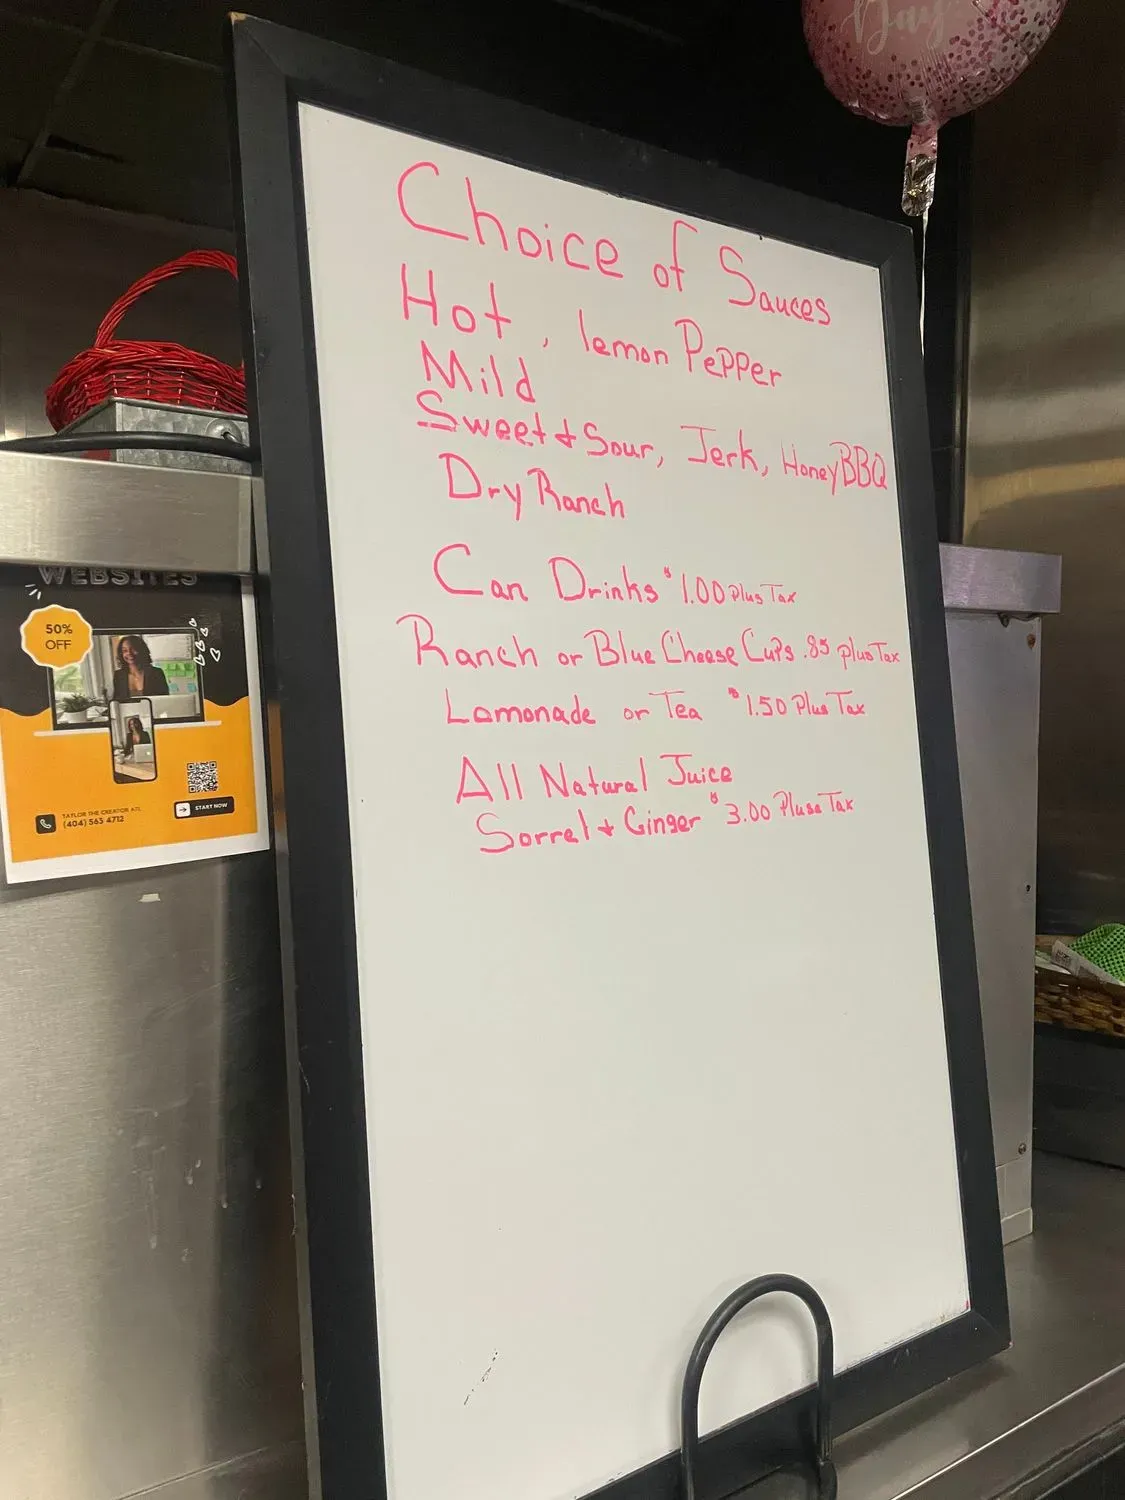 Day
Choice of Sauces
Hot, lemon Pepper
Mild
Sweet & Sour, Jerk, Honey BBQ
Dry Ranch
Can Drinks $1.00 Plus Tax
Ranch or Blue Cheese Cups .85 plus Tax
Lamonade or Tea $1.50 Plus Tax
All Natural Juice
Sorrel & Ginger $3.00 Pluse Tax
WEBSITES
50%
OFF
TAYLOR THE CREATOR ATL
(404) 565 4712
START NOW